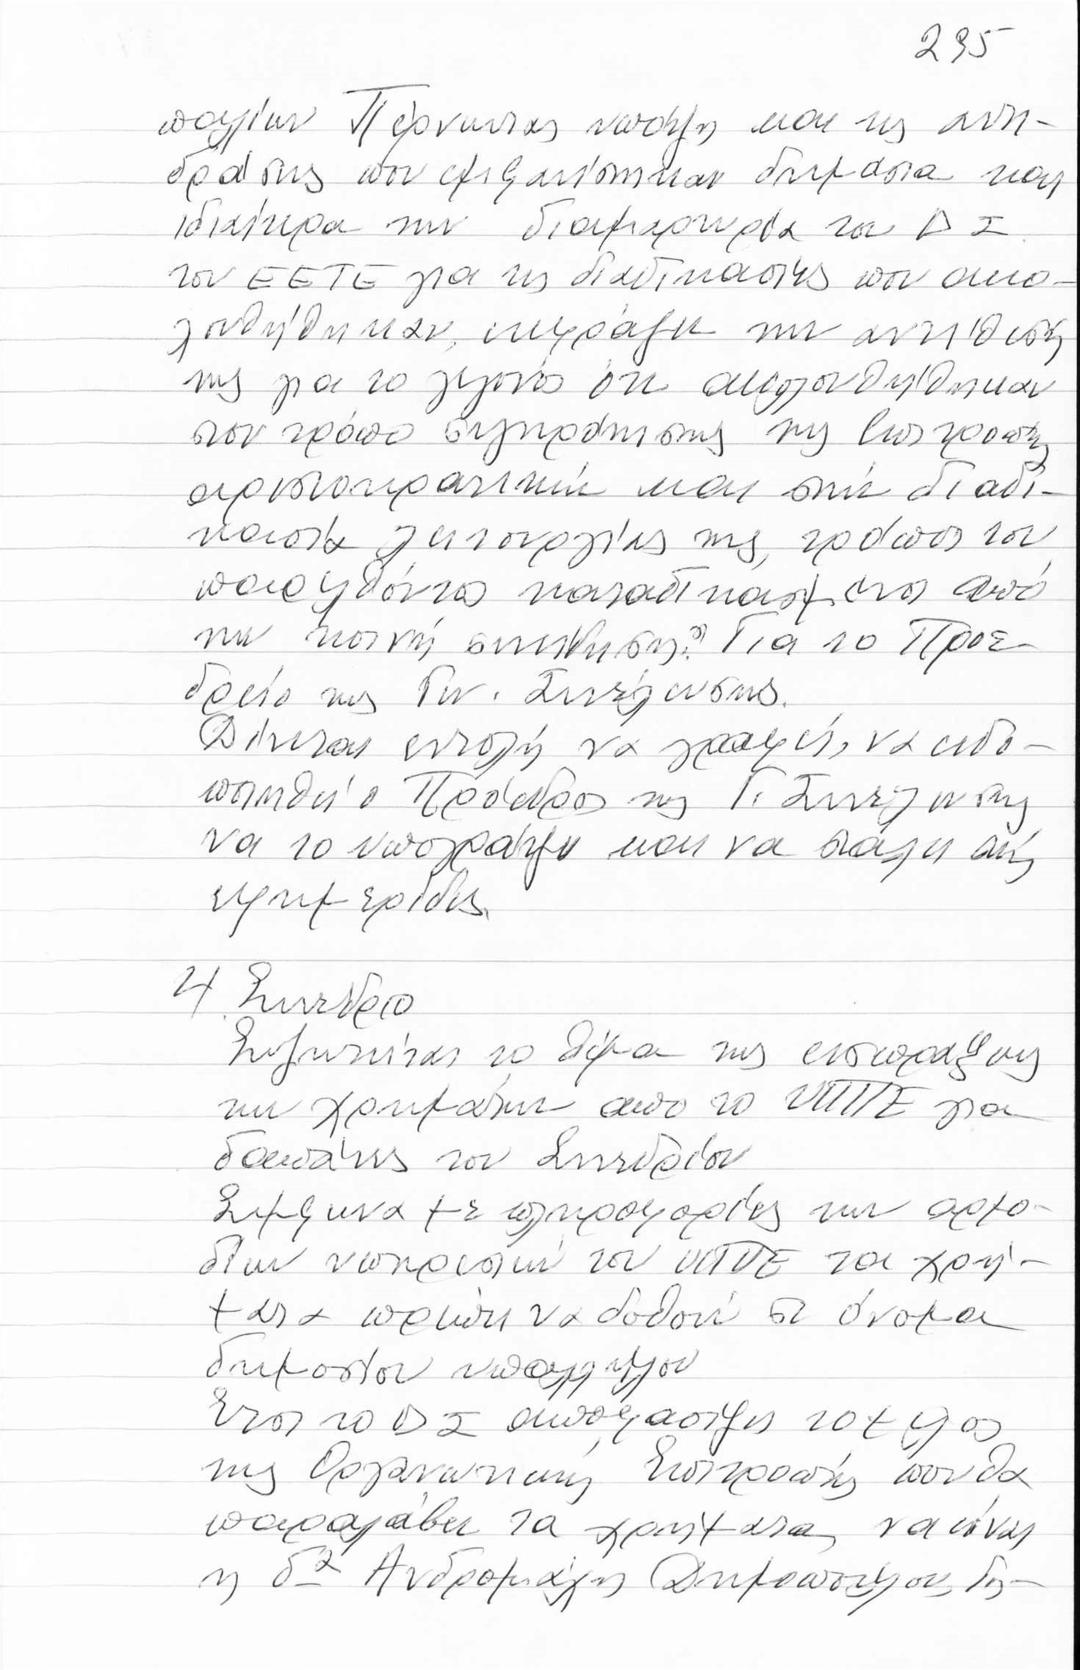 295
παγίων Παίρνοντας υπόψη και τις αντι-
δράσεις που εμφανίστηκαν δημόσια και
ιδιαίτερα την διαμαρτυρία του Δ Σ
του ΕΕΤΕ για τις διαδικασίες που ακο-
λουθήθηκαν, εκφράζει την αντίθεσή
της για το γεγονός ότι ακολουθήθηκαν
στον τρόπο συγκρότησης της Επιτροπής
αριστοκρατικής και στην διαδι-
κασία λειτουργίας της, τρόποι του
παρελθόντος καταδικασμένοι από
την κοινή συνείδηση." Για το Προε-
δρείο της Γεν. Συνέλευσης.
Δίνεται εντολή να γραφεί, να ειδο-
ποιηθεί ο Πρόεδρος της Γ. Συνέλευσης
να το υπογράψει και να σταλεί στις
εφημερίδες.
4. Συνέδριο
Συζητείται το θέμα της εισπράξεως
των χρημάτων από το ΥΠΠΕ για
δαπάνες του Συνεδρίου
Σύμφωνα με πληροφορίες των αρμο-
δίων υπηρεσιών του ΥΠΠΕ τα χρή-
ματα πρέπει να δοθούν σε όνομα
δημοσίου υπαλλήλου
Έτσι το Δ Σ αποφασίζει το μέλος
της Οργανωτικής Επιτροπής που θα
παραλάβει τα χρήματα, να είναι
η δα Ανδρομάχη Δημοπούλου, δη-